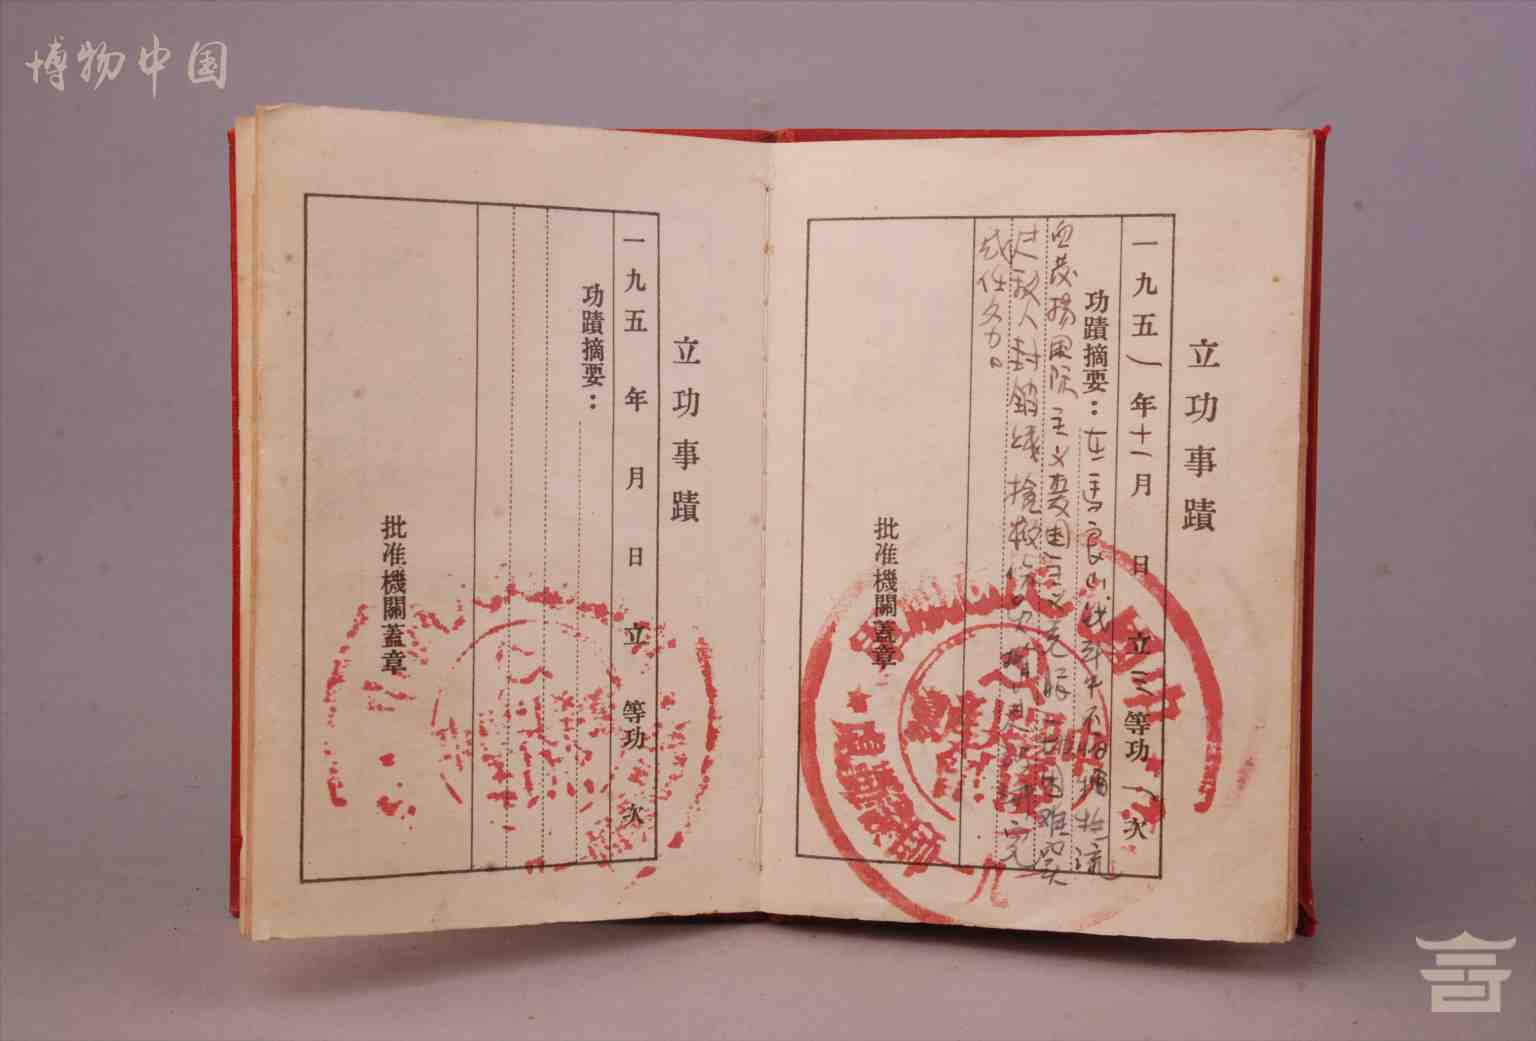 博物中国
立功事蹟
一九五一年十一月 日立三等功一次
功蹟摘要：在馬良山战斗中不怕牺牲流
血发揚国际主义爱国主义克服一切困难突
过敌人封锁线搶救伤 完
成任务。
批准機關蓋章
立功事蹟
一九五 年 月 日立 等功 次
功蹟摘要：
批准機關蓋章